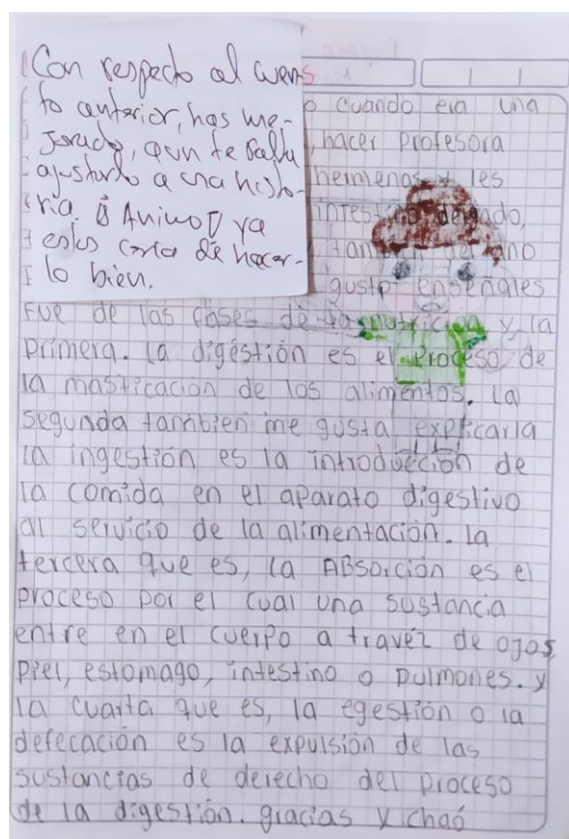 Con respecto al cuen-
to anterior, has me-
jorado, aun te falta
ajustarlo a una histo-
ria. ¡Animo! ya
estas cerca de hacer-
lo bien.
o cuando era una
hacer profesora
les
intestino delgado,
gusto enseñales
Fue de las clases de la nutrición y la
primera. La digestión es el proceso de
la masticación de los alimentos. La
segunda tambien me gusta explicarla
la ingestión es la introducción de
la comida en el aparato digestivo
al servicio de la alimentación. La
tercera que es, la Absorción es el
proceso por el cual una sustancia
entre en el cuerpo a travéz de ojos,
piel, estomago, intestino o pulmones. y
la cuarta que es, la egestión o la
defecación es la expulsión de las
sustancias de derecho del proceso
de la digestión. gracias y chaó